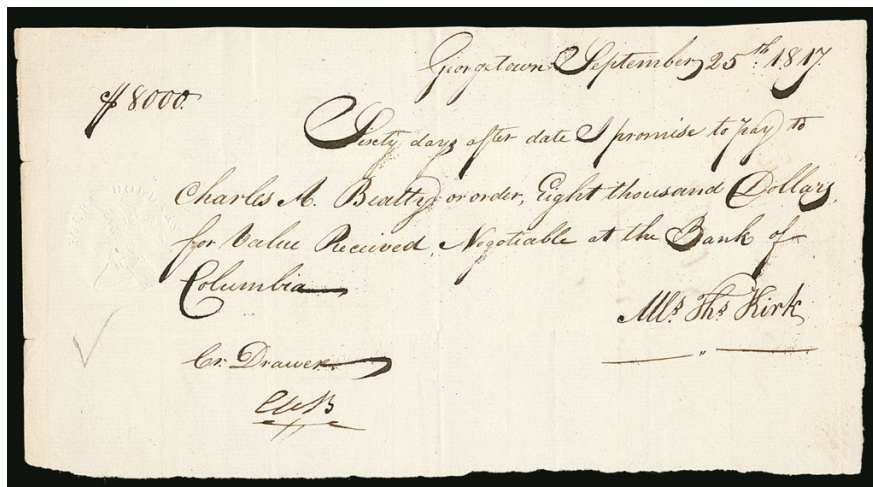 Georgetown September 25th 1817.
$8000.
Sixty days after date I promise to pay to
Charles A. Beatty or order, Eight thousand Dollars,
for Value Received, Negotiable at the Bank of
Columbia
Ths Kirk
Cr. Drawer
CAB